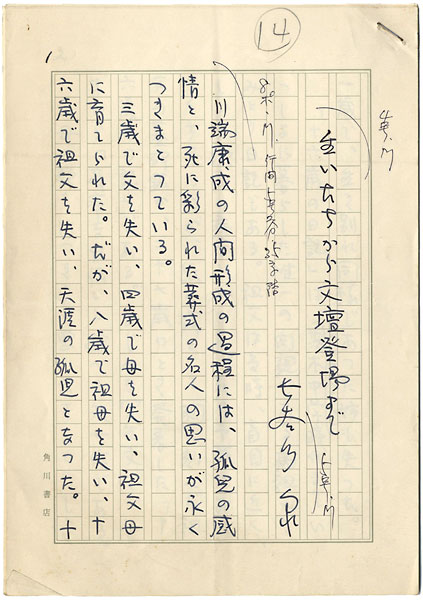 14
生いたちから文壇登場まで
長谷川泉
川端康成の人間形成の過程には、孤児の感
情と、死に彩られた葬式の名人の思いが永く
つきまとっている。
三歳で父を失い、四歳で母を失い、祖父母
に育てられた。だが、八歳で祖母を失い、十
六歳で祖父を失い、天涯の孤児となった。十
角川書店